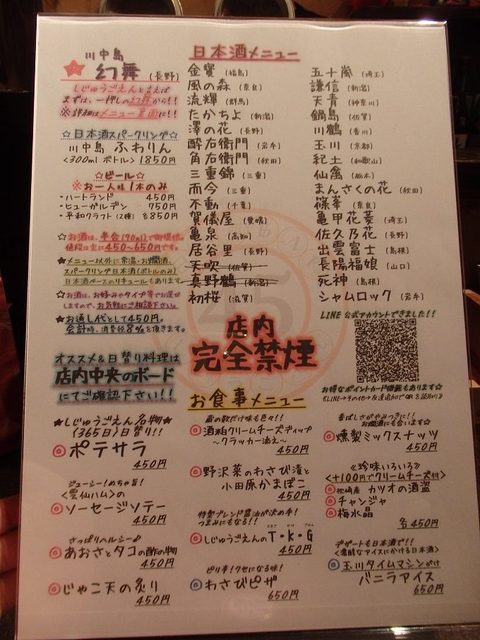 川中島
幻舞 (長野)
しじゅうごえんとさえば
まずは、一押しの幻舞から!!
※詳細はメニュー裏面に!!
☆日本酒スパークリング☆
川中島 ふわりん
<300ml ボトル> 1850円
☆ビール☆
※お一人様1本のみ
・ハートランド 450円
・ヒューガルデン 750円
・平和クラフト(2種) 各850円
☆お酒は、半合(90ml)で御提供。
値段は主に450〜650円です。
★メニュー以外に常温・お燗酒、
スパークリング日本酒(ボトルのみ)
日本酒ベースのリキュールもあります。
☆お酒は、お好みやタイプ等でお出し
しますので、お気軽にご相談下さい。
★お通し代として450円。
会計時、消費税8%を頂きます。
オススメ&日替り料理は
店内中央のボード
にてご確認下さい!!
日本酒メニュー
金寶 (福島)
風の森 (奈良)
流輝 (群馬)
たかちよ (新潟)
澤の花 (長野)
酔右衛門 (岩手)
角右衛門 (秋田)
三重錦 (三重)
而今 (三重)
不動 (千葉)
賀儀屋 (愛媛)
亀泉 (高知)
居谷里 (長野)
天吹 (佐賀)
真野鶴 (新潟)
初桜 (滋賀)
五十嵐 (埼玉)
謙信 (新潟)
天青 (神奈川)
鍋島 (佐賀)
川鶴 (香川)
玉川 (京都)
紀土 (和歌山)
仙禽 (栃木)
まんさくの花 (秋田)
篠峯 (奈良)
亀甲花菱 (埼玉)
佐久乃花 (長野)
出雲富士 (島根)
長陽福娘 (山口)
死神 (島根)
シャムロック (岩手)
店内
完全禁煙
LINE 公式アカウントできました!!
お得なポイントカード機能もあります☆
お食事メニュー
★しじゅうごえん名物★
(365日)日替り!!
◎ポテサラ
450円
ジューシー!めちゃ旨!
<雲仙ハム>の
◎ソーセージソテー
450円
さっぱりヘルシー♪
◎あおさとタコの酢の物
450円
◎じゃこ天の炙り
450円
◎酒粕クリームチーズディップ
〜クラッカー添え〜
450円
◎野沢菜のわさび漬と
小田原かまぼこ
450円
特製ブレンド醤油が決め手!
つまみにもなる!!
◎しじゅうごえんのT・K・G
450円
ピリ辛!クセになる味!
◎わさびピザ
650円
香ばしさがやみつきに!!
お燗酒にも合います☆
◎燻製ミックスナッツ
450円
≪珍味いろいろ≫
<+100円でクリームチーズ付>
カツオの酒盗
◎チャンジャ
◎梅水晶
各450円
デザートも日本酒で!!
<濃厚なアイスにかける日本酒>
◎玉川タイムマシンがけ
バニラアイス
650円